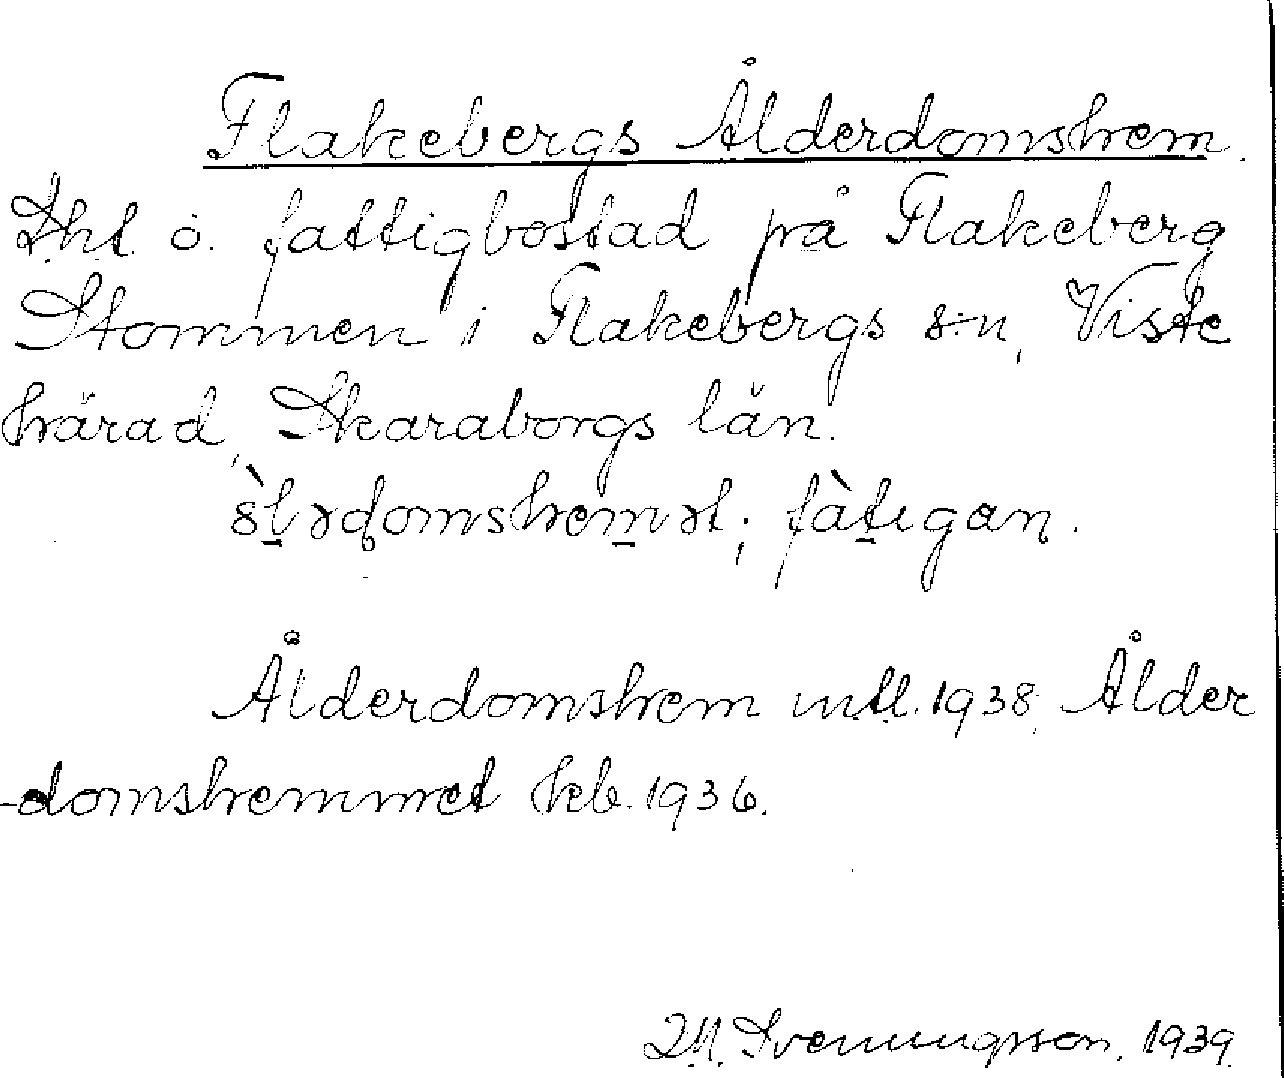 Flakebergs Ålderdomshem.
Lht o. fattigbostad på Flakeberg
Stommen i Flakebergs s:n, Viste
härad, Skaraborgs län.
ò̀lədomshemət; fàtigan.
Ålderdomshem mtl. 1938. Ålder
-domshemmet kb. 1936.
M. Svenungsson. 1939.